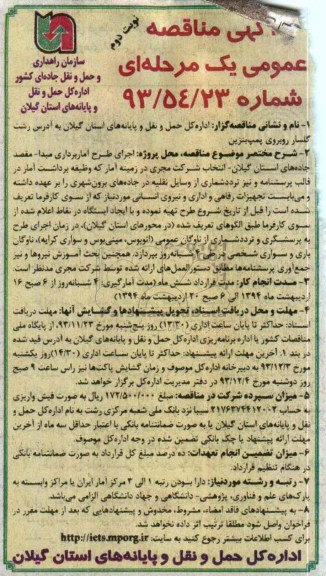 آگهی مناقصه
نوبت دوم
عمومی یک مرحله‌ای
شماره ۹۳/۵۴/۲۳
سازمان راهداری
و حمل و نقل جاده‌ای کشور
اداره‌کل حمل و نقل
و پایانه‌های استان گیلان
۱- نام و نشانی مناقصه‌گزار: اداره‌کل حمل و نقل و پایانه‌های استان گیلان به آدرس رشت
گلسار روبروی پمپ‌بنزین
۲- شرح مختصر موضوع مناقصه، محل پروژه: اجرای طرح آماربرداری مبدا- مقصد
جاده‌های استان گیلان- انتخاب شرکت مجری در زمینه آمار که وظیفه برداشت آمار در
قالب پرسشنامه و نیز ترددشماری از وسایل نقلیه در جاده‌های برون‌شهری را بر عهده داشته
و می‌بایست تجهیزات رفاهی و اداری و نیروی انسانی موردنیاز که از سوی کارفرما تعریف
شده است را قبل از تاریخ شروع طرح تهیه نموده و با ایجاد ایستگاه در نقاط اعلام شده از
سوی کارفرما طبق الگوهای تعریف شده (در محورهای استان گیلان)، در زمان اجرای طرح
به پرسشگری و ترددشماری از ناوگان عمومی (اتوبوس، مینی‌بوس و سواری کرایه)، ناوگان
باری و سواری شخصی در ۴ شبانه‌روز بپردازد. همچنین بحث آموزش نیروها و نیز
جمع‌آوری پرسشنامه‌ها مطابق دستورالعمل‌های ارائه شده توسط شرکت مجری مدنظر است
۳- مدت انجام کار: مدت قرارداد شش ماه (مدت آمارگیری: ۴ شبانه‌روز از ۶ صبح ۱۶
اردیبهشت ماه ۱۳۹۴ الی ۶ صبح ۲۰ اردیبهشت ماه ۱۳۹۴)
۴- مهلت و محل دریافت اسناد، تحویل پیشنهادها و گشایش آنها: مهلت دریافت
اسناد: حداکثر تا پایان ساعت اداری (۱۳/۳۰) روز پنج‌شنبه مورخ ۹۳/۱۱/۲۳ از پایگاه ملی
مناقصات کشور یا اداره برنامه‌ریزی اداره‌کل حمل و نقل و پایانه‌های گیلان به آدرس قید شده
در بند ۱. آخرین مهلت ارائه پیشنهاد: حداکثر تا پایان ساعت اداری (۱۴/۳۰) روز یکشنبه
مورخ ۹۳/۱۲/۳ به دبیرخانه اداره‌کل موصوف و زمان گشایش پاکت‌ها نیز راس ساعت ۹ صبح
روز دوشنبه مورخ ۹۳/۱۲/۴ در دفتر مدیریت اداره‌کل برگزار خواهد شد.
۵- میزان سپرده شرکت در مناقصه: مبلغ ۱۷۲/۵۰۰/۰۰۰ ریال به صورت فیش واریزی
به حساب ۲۱۷۶۳۷۴۴۱۲۰۰۲ سیبا نزد بانک ملی شعبه مرکزی رشت به نام اداره‌کل حمل و
نقل و پایانه‌های استان گیلان یا به صورت ضمانتنامه بانکی با اعتبار حداقل سه ماه از آخرین
مهلت ارائه پیشنهاد یا چک بانکی تضمین شده در وجه اداره‌کل موصوف.
۶- میزان تضمین انجام تعهدات: ده درصد مبلغ کل قرارداد به صورت ضمانتنامه بانکی
در هنگام تنظیم قرارداد.
۷- رتبه و رشته موردنیاز: دارا بودن رتبه ۱ الی ۳ مرکز آمار ایران یا مراکز وابسته به
پارک‌های علم و فناوری، پژوهشی- دانشگاهی و جهاد دانشگاهی الزامی می‌باشد.
۸- به پیشنهادهای فاقد امضاء، مشروط، مخدوش و پیشنهادهایی که بعد از مهلت مقرر در
فراخوان واصل شود مطلقا ترتیب اثر داده نخواهد شد.
برای کسب اطلاعات بیشتر رجوع کنید به سایت: http://iets.mporg.ir
اداره‌کل حمل و نقل و پایانه‌های استان گیلان